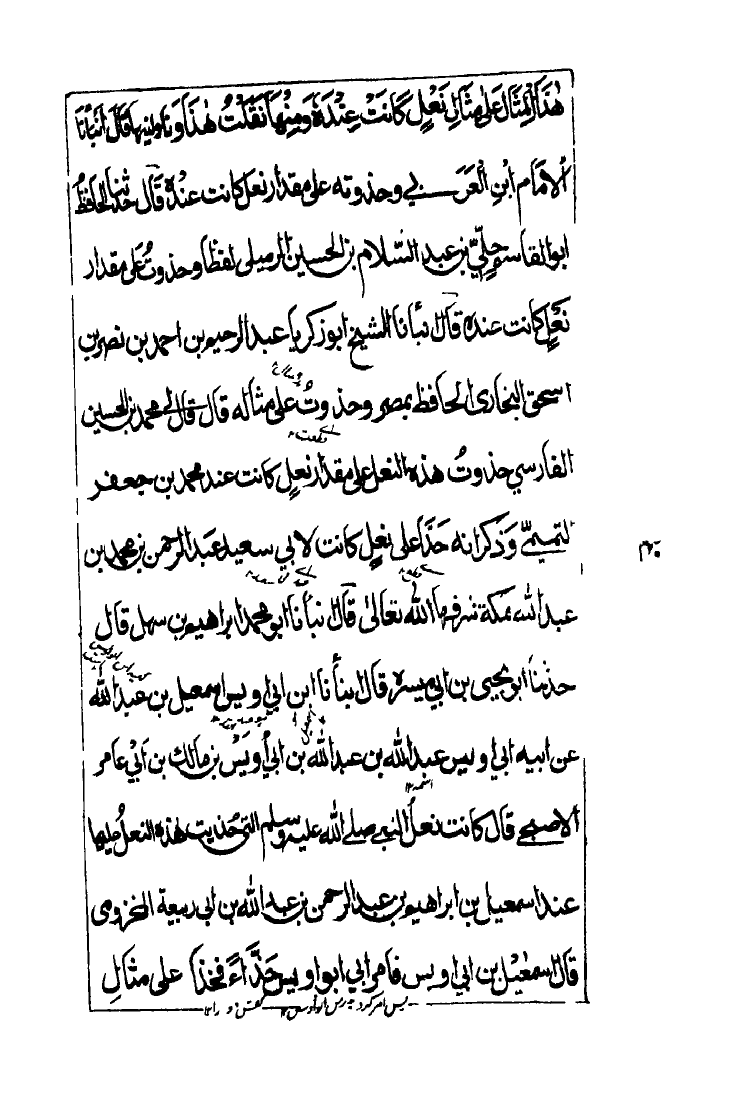 هٰذَا الْمِثَالَ عَلىٰ مِثَالِ نَعْلٍ كَانَتْ عِنْدَهٗ وَمِنْهَا نَقَلْتُ هٰذَا وَنَاوَلَنِيهَا قَالَ اَنْبَأنَا
الْاِمَامُ ابْنُ الْعَرَبِي وحذوته على مقدار نعل كانت عنده قَالَ حَدَّثَنَا الحافظُ
ابو القاسم خلي بن عبد السَّلام بن الحسين الرميلى لفظًا وحذوتُ على مقدار
نعلٍ كانت عنده قال نبأنا الشيخ ابو زكريا عبد الرحيم بن احمد بن نصر بن
اسحٰق البخارى الحافظ بمصر وحذوتُ على مثاله قال قال لى محمد بن الحسين
الفارسي حذوتُ هذه النعل على مقدار نعلٍ كانت عند محمد بن جعفر
التميميّ وَذكر انه حَذَّا على نعلٍ كانت لابي سعيد عَبد الرحمن بن محمد بن
عبد الله بمكة شرفها الله تعالىٰ قال نبأنا ابو محمد ابراهيم بن سهل قال
حدثنا ابو يحيى بن ابي ميسره قال انبأنا ابن ابي اويس اسمعيل بن عبد الله
عن ابيه ابي اويس عبد الله بن عبد الله بن ابي أويْس بن مالك بن اَبيْ عامر
الاصبحي قال كانت نعلُ النبي صلى الله عليه وسلم التى حُذيت هٰذه النعلُ عليها
عند اسمعيل بن ابراهيم بن عبد الرحمن بن عبد الله بن ابي ربيعة المخزومى
قال اسمعيل بن ابي اويس فامر ابي ابو اويس حَذَّاءً فحذا على مثالِ